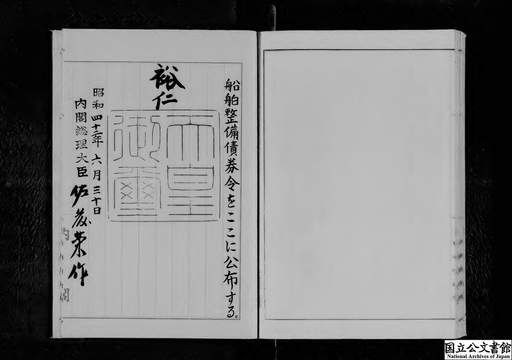 船舶整備債券令をここに公布する。
裕仁
天皇
御璽
昭和四十三年六月三十日
内閣総理大臣 佐藤榮作
内閣
国立公文書館
National Archives of Japan